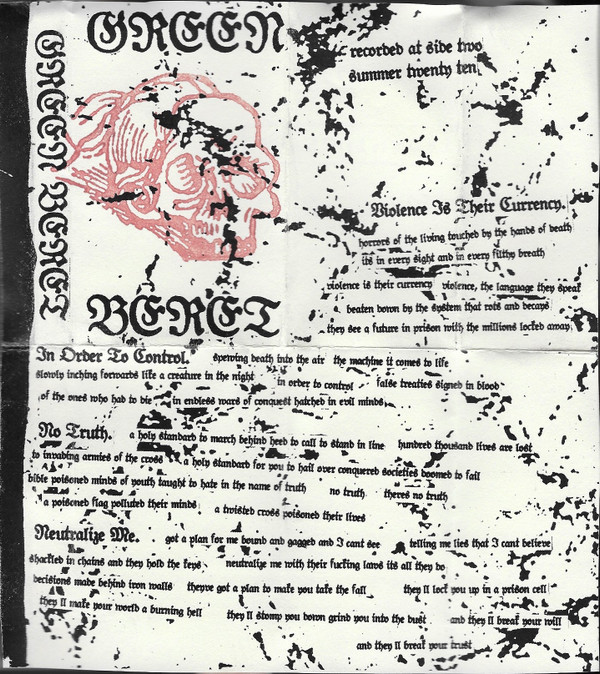 GREEN
BERET
GREEN BERET
recorded at side two
summer twenty ten
Violence Is Their Currency.
horrors of the living touched by the hands of death
its in every sight and in every filthy breath
violence is their currency violence, the language they speak
beaten down by the system that rots and decays
they see a future in prison with the millions locked away
In Order To Control. spewing death into the air the machine it comes to life
slowly inching forwards like a creature in the night in order to control false treaties signed in blood
of the ones who had to die in endless wars of conquest hatched in evil minds
No Truth. a holy standard to march behind heed to call to stand in line hundred thousand lives are lost
to invading armies of the cross a holy standard for you to hail over conquered societies doomed to fail
bible poisoned minds of youth taught to hate in the name of truth no truth theres no truth
a poisoned flag polluted their minds a twisted cross poisoned their lives
Neutralize Me. got a plan for me bound and gagged and I cant see telling me lies that I cant believe
shackled in chains and they hold the keys neutralize me with their fucking laws its all they do
decisions made behind iron walls theyve got a plan to make you take the fall they ll lock you up in a prison cell
they ll make your world a burning hell they ll stomp you down grind you into the dust and they ll break your will
and they ll break your trust